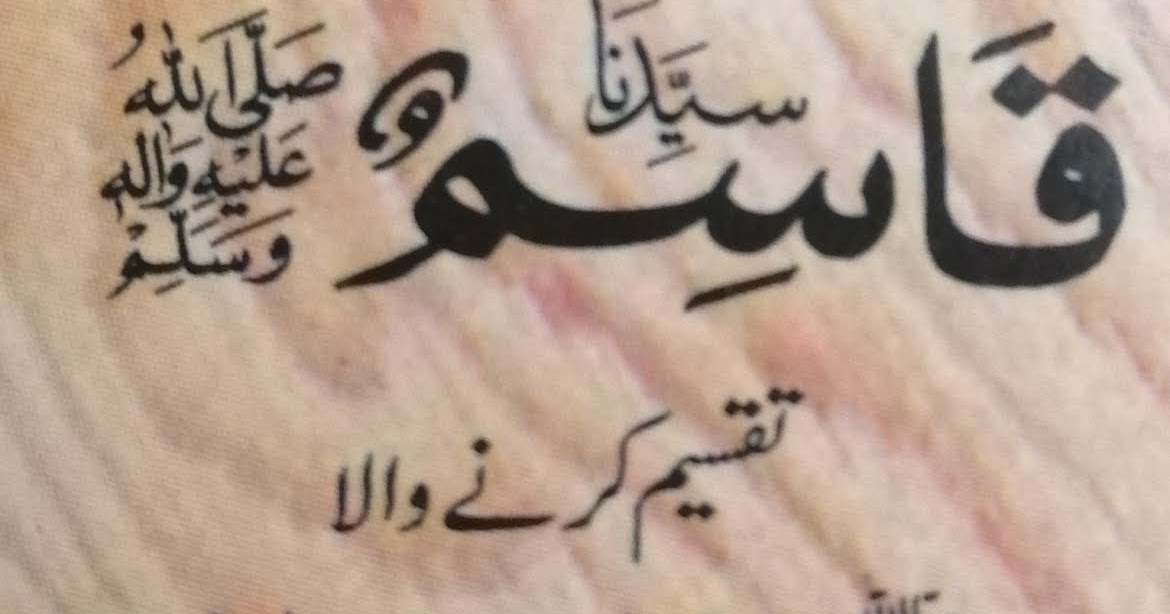 سَيِّدُنَا
قَاسِمٌ
صَلَّى اللهُ
عَلَيْهِ وَاٰلِهٖ
وَسَلَّمْ
تقسیم کرنے والا